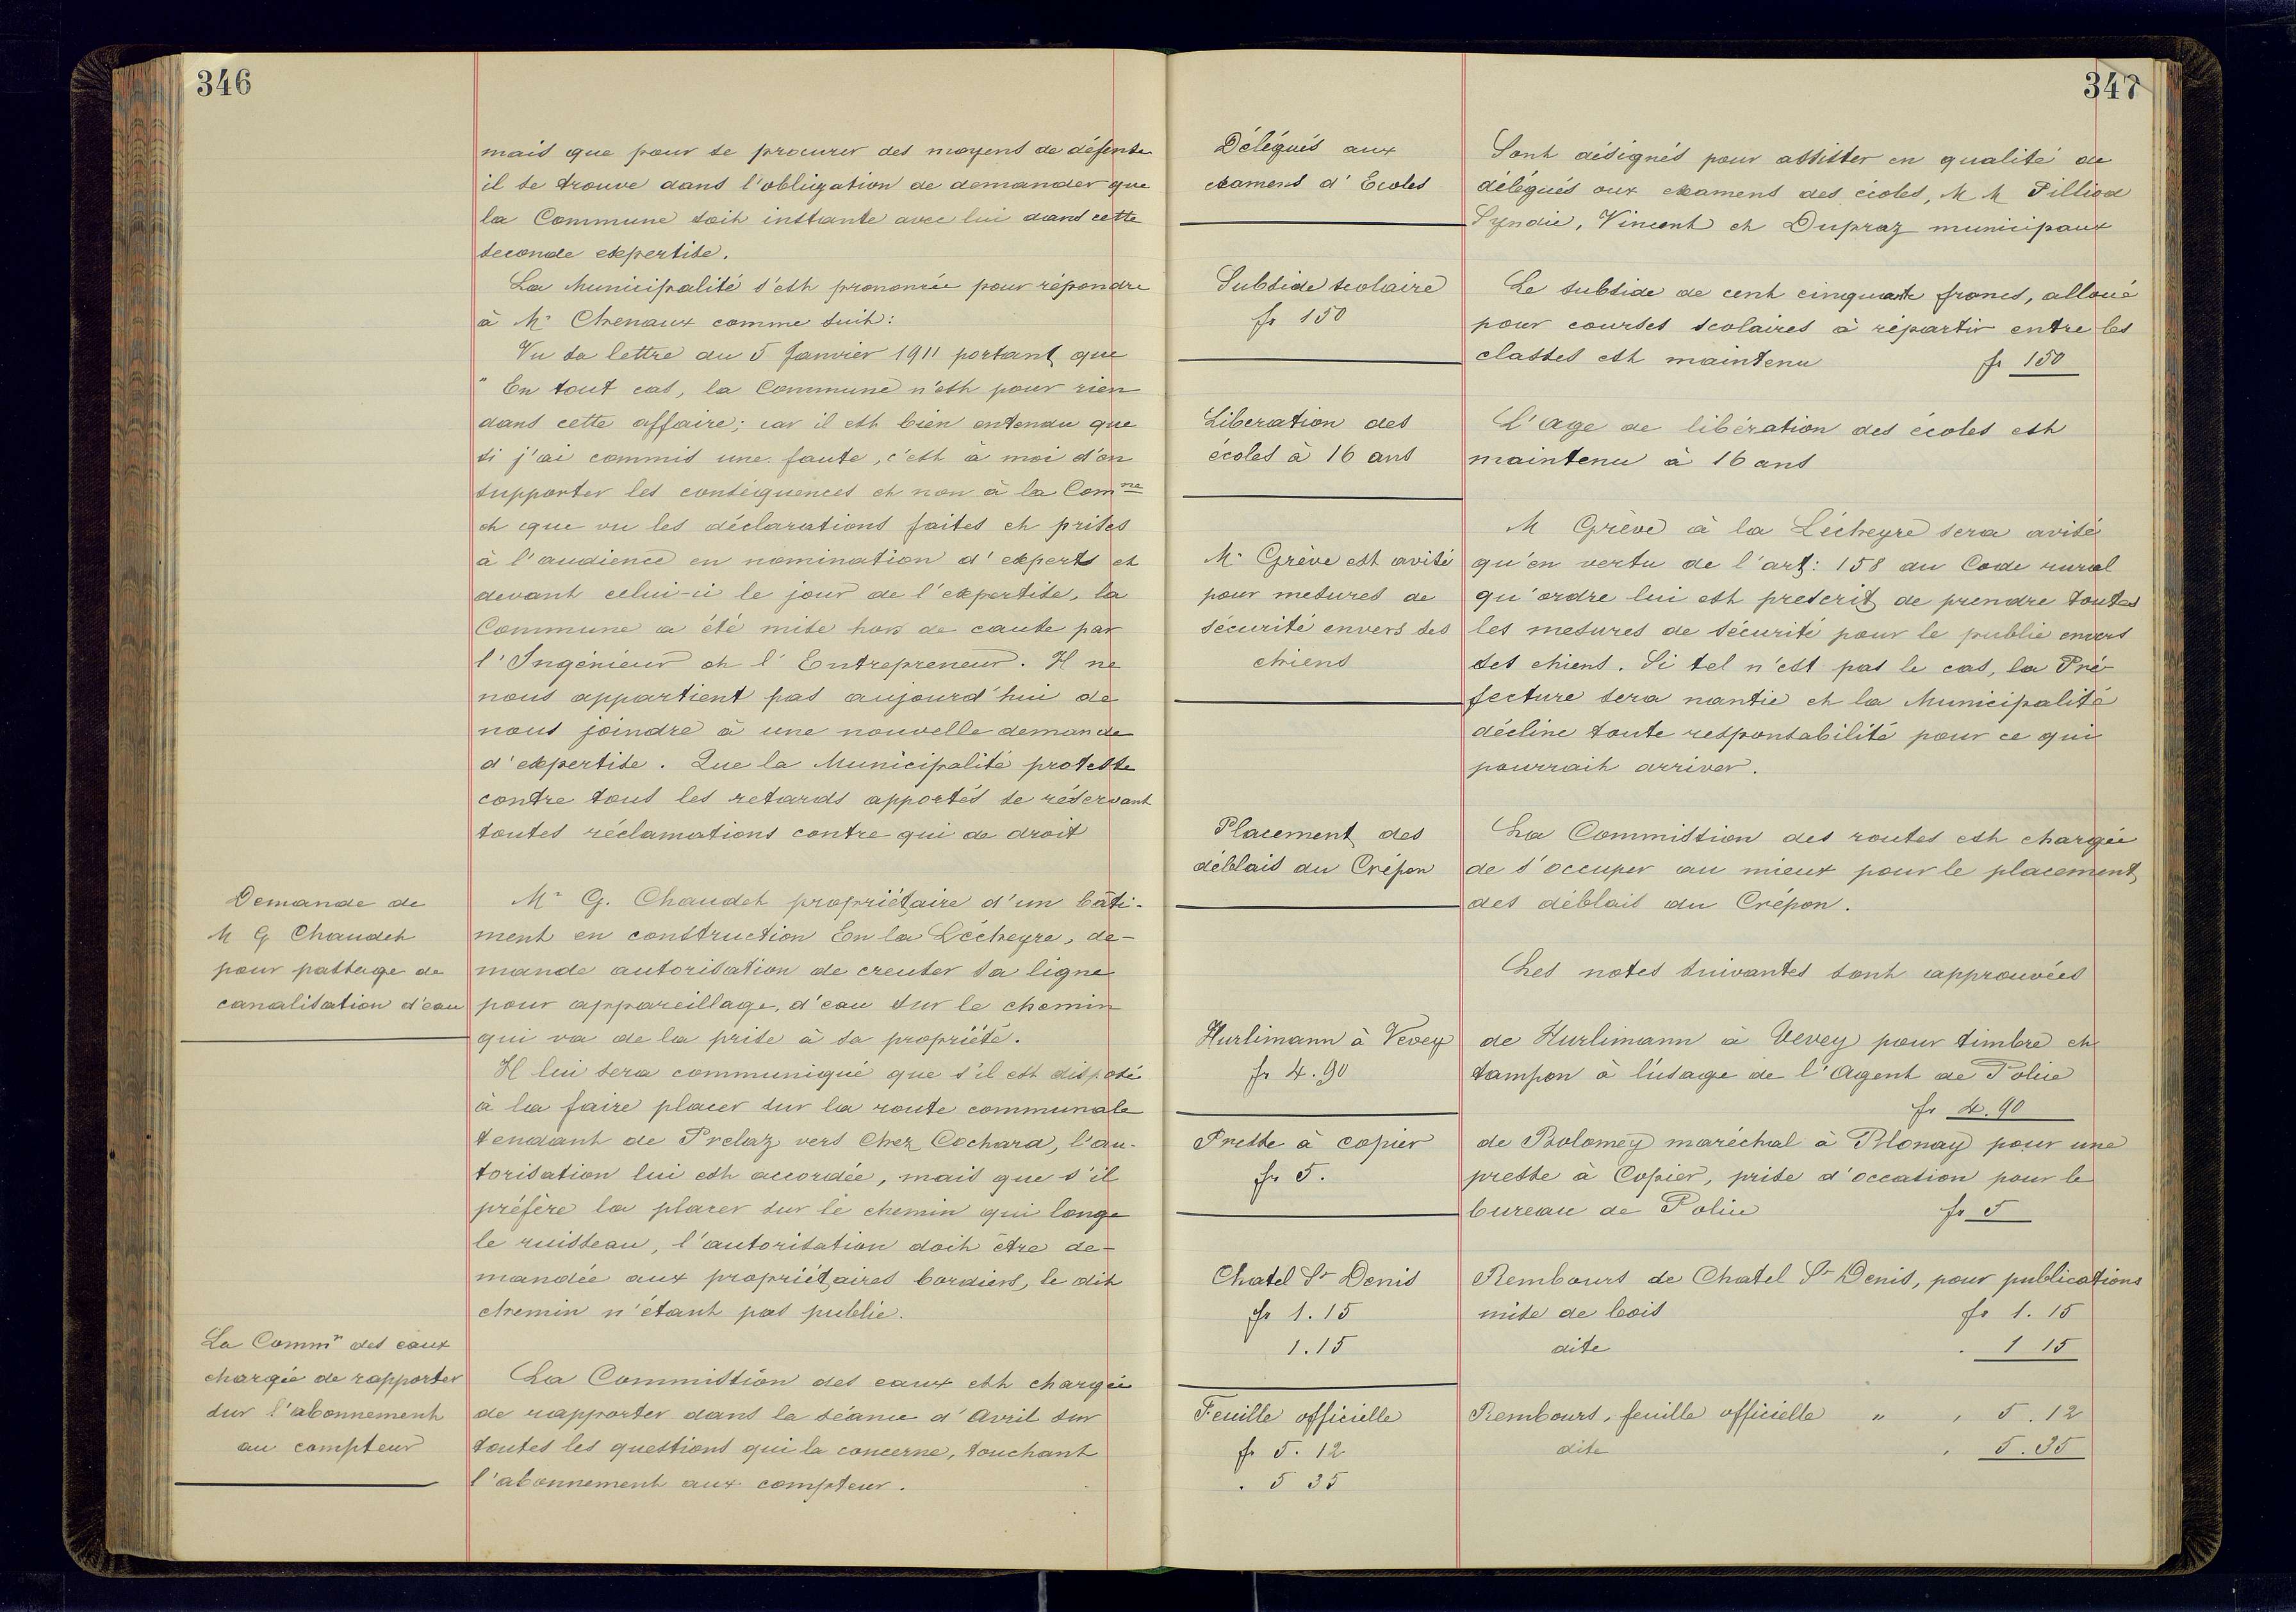 346
mais que pour se procurer des moyens de défense
il se trouve dans l'obligation de demander que
la Commune soit instante avec lui dans cette
seconde expertise.
La Municipalité s'est prononcée pour répondre
à Mr Chenaux comme suit:
Vu sa lettre du 5 Janvier 1911 portant que
" En tout cas, la Commune n'est pour rien
dans cette affaire; car il est bien entendu que
si j'ai commis une faute, c'est à moi d'en
supporter les conséquences et non à la Comne
et que vu les déclarations faites et prises
à l'audience en nomination d'experts et
devant celui-ci le jour de l'expertise, la
Commune a été mise hors de cause par
l'Ingénieur et l'Entrepreneur. Il ne
nous appartient pas aujourd'hui de
nous joindre à une nouvelle demande
d'expertise. Que la Municipalité proteste
contre tous les retards apportés se réservant
toutes réclamations contre qui de droit
Demande de
M G Chaudet
pour passage de
canalisation d'eau
Mr G. Chaudet propriétaire d'un bâti-
ment en construction En la Lécheyre, de-
mande autorisation de creuser sa ligne
pour appareillage, d'eau sur le chemin
qui va de la prise à sa propriété.
Il lui sera communiqué que s'il est disposé
à la faire placer sur la route communale
tendant de Prelaz vers Chez Cochard, l'au-
torisation lui est accordée, mais que s'il
préfère la placer sur le chemin qui longe
le ruisseau, l'autorisation doit être de-
mandée aux propriétaires bordiers, le dit
chemin n'étant pas public.
La Commn des eaux
chargée de rapporter
sur l'abonnement
au compteur
La Commission des eaux est chargée
de rapporter dans la séance d'Avril sur
toutes les questions qui la concerne, touchant
l'abonnement aux compteur.
347
Délégués aux
examens d'Ecoles
Sont désignés pour assister en qualité de
délégués aux examens des écoles, M M Pilliod
Syndic, Vincent et Dupraz municipaux
Subside scolaire
fr 150
Le subside de cent cinquante francs, alloué
pour courses scolaires à répartir entre les
classes est maintenu fr 150
Liberation des
écoles à 16 ans
L'age de libération des écoles est
maintenu à 16 ans
Mr Grève est avisé
pour mesures de
sécurité envers ses
chiens
M Grève à la Lécheyre sera avisé
qu'en vertu de l'art: 158 du Code rural
qu'ordre lui est prescrit de prendre toutes
les mesures de sécurité pour le public envers
ses chiens. Si tel n'est pas le cas, la Pré-
fecture sera nantie et la Municipalité
décline toute responsabilité pour ce qui
pourrait arriver.
Placement des
déblais du Crépon
La Commission des routes est chargée
de s'occuper au mieux pour le placement
des déblais du Crépon.
Les notes suivantes sont approuvées
Hurlimann à Vevey
fr 4.90
de Hurlimann à Vevey pour timbre et
tampon à l'usage de l'Agent de Police
fr 4.90
Presse à copier
fr 5.
de Bolomey maréchal à Blonay pour une
presse à Copier, prise d'occasion pour le
bureau de Police fr 5
Chatel St Denis
fr 1.15
1.15
Rembours de Chatel St Denis, pour publications
mise de bois fr 1. 15
dite . 1 15
Feuille officielle
fr 5. 12
. 5 35
Rembours, feuille officielle " , 5.12
dite , 5.35